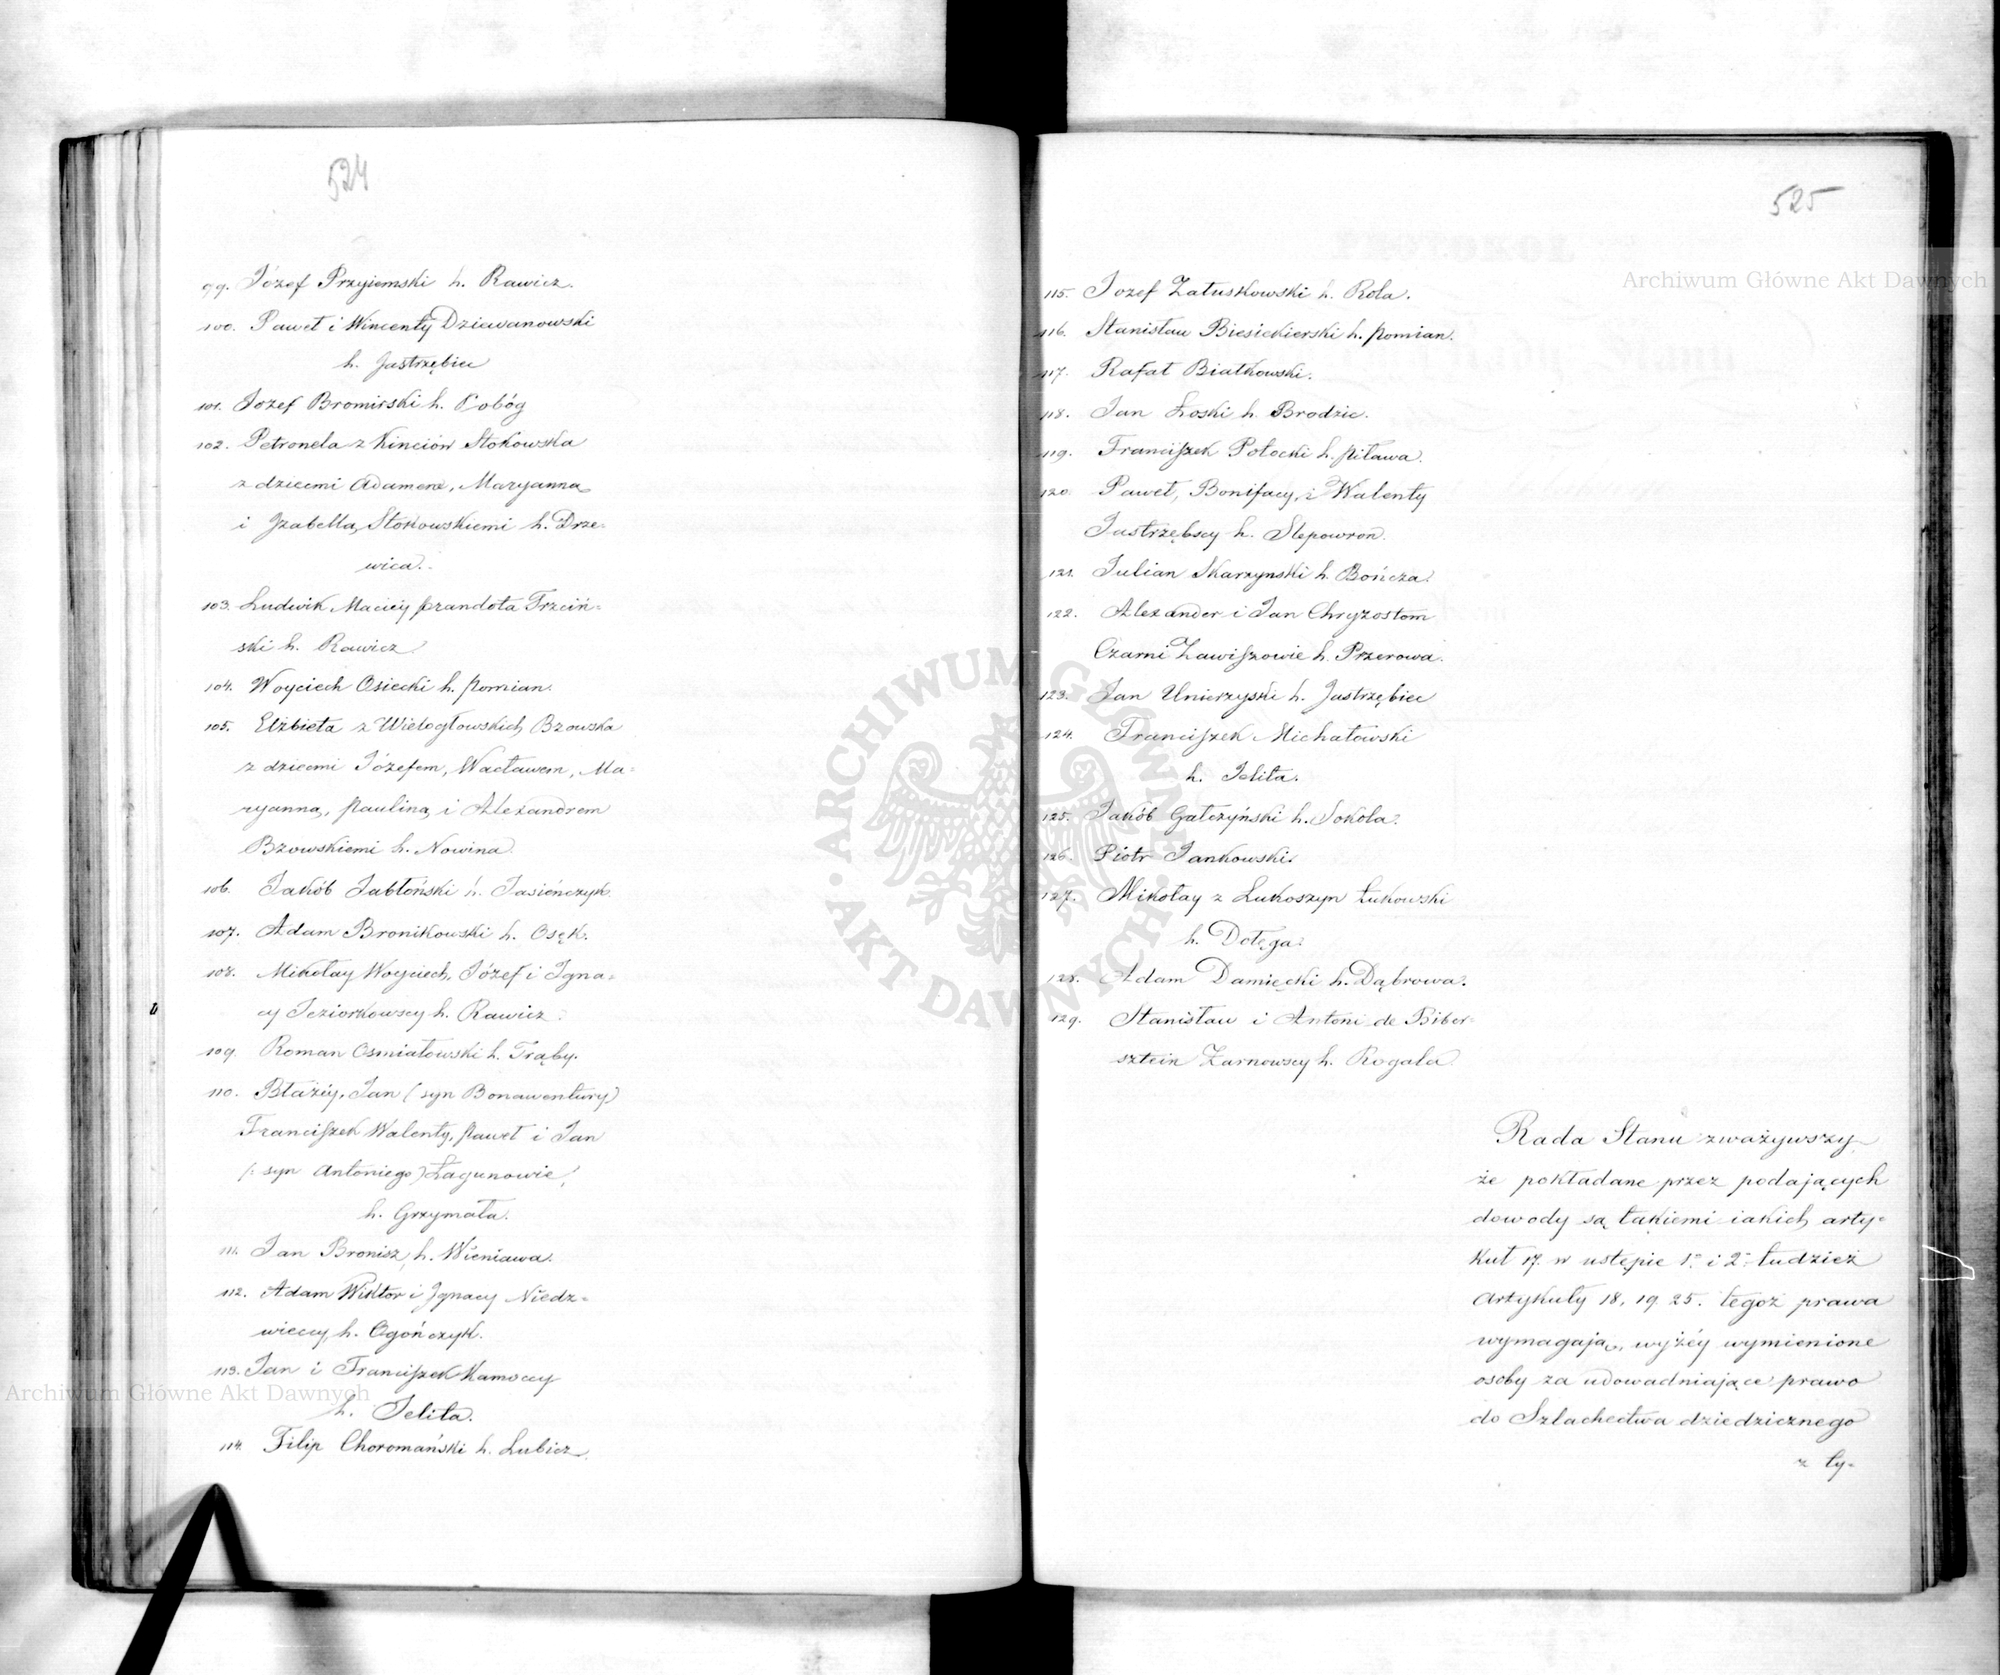 524
99. Józef Przyiemski h. Rawicz.
100. Paweł i Wincenty Dziewanowski
h. Jastrzębiec
101. Jozef Bromirski h. Pobóg
102. Petronela z Kinciów Stokowska
z dziećmi Adamem, Maryanną
i Jzabellą Stokowskiemi h. Drze=
wica.
103. Ludwik Maciéy Prandota Trzciń=
ski h. Rawicz
104. Woyciech Osiecki h. Pomian.
105. Elżbieta z Wielogłowskich Bzowska
z dziećmi Józefem, Wacławem, Ma=
ryanną, Pauliną i Alexandrem
Bzowskiemi h. Nowina
106. Jakób Jabłoński h. Jasieńczyk.
107. Adam Bronikowski h. Osęk.
108. Mikołay Woyciech, Józef i Igna=
cy Jeziorkowscy h. Rawicz.
109. Roman Osmiałowski h. Trąby.
110. Błażéy, Jan (syn Bonawentury)
Franciszek Walenty, Paweł i Jan
(: syn Antoniego) Łagunowie,
h. Grzymała.
111. Jan Bronisz h. Wieniawa.
112. Adam Wiktor i Jgnacy Niedz=
wieccy h. Ogończyk.
113. Jan i Franciszek Kamoccy
h. Jelita.
114. Filip Choromański h. Lubicz.
525
115. Jozef Załuskowski h. Rola.
116. Stanisław Biesiekierski h. Pomian.
117. Rafał Białkowski.
118. Jan Łoski h. Brodzic.
119. Franciszek Potocki h. Piława.
120. Paweł, Bonifacy, i Walenty
Jastrzębscy h. Slepowron.
121. Julian Skarzynski h. Bończa.
122. Alexander i Jan Chryzostom
Czarni Zawiszowie h. Przerowa.
123. Jan Unierzyski h. Jastrzębiec
124. Franciszek Michałowski
h. Jelita.
125. Jakób Gałczyński h. Sokola.
126. Piotr Jankowski.
127. Mikołay z Lukoszyn Łukowski
h. Dołęga.
128. Adam Damięcki h. Dąbrowa.
129. Stanisław i Antoni de Biber=
sztein Zarnowscy h. Rogala
Rada Stanu zważywszy,
że pokładane przez podających
dowody są takiemi iakich arty=
kuł 17. w ustępie 1º i 2º tudzież
Artykuły 18, 19. 25. tegoż prawa
wymagają, wyżéy wymienione
osoby za udowadniające prawo
do Szlachectwa dziedzicznego
z ty=
Archiwum Główne Akt Dawnych
Archiwum Główne Akt Dawnych
ARCHIWUM GŁÓWNE · AKT DAWNYCH ·